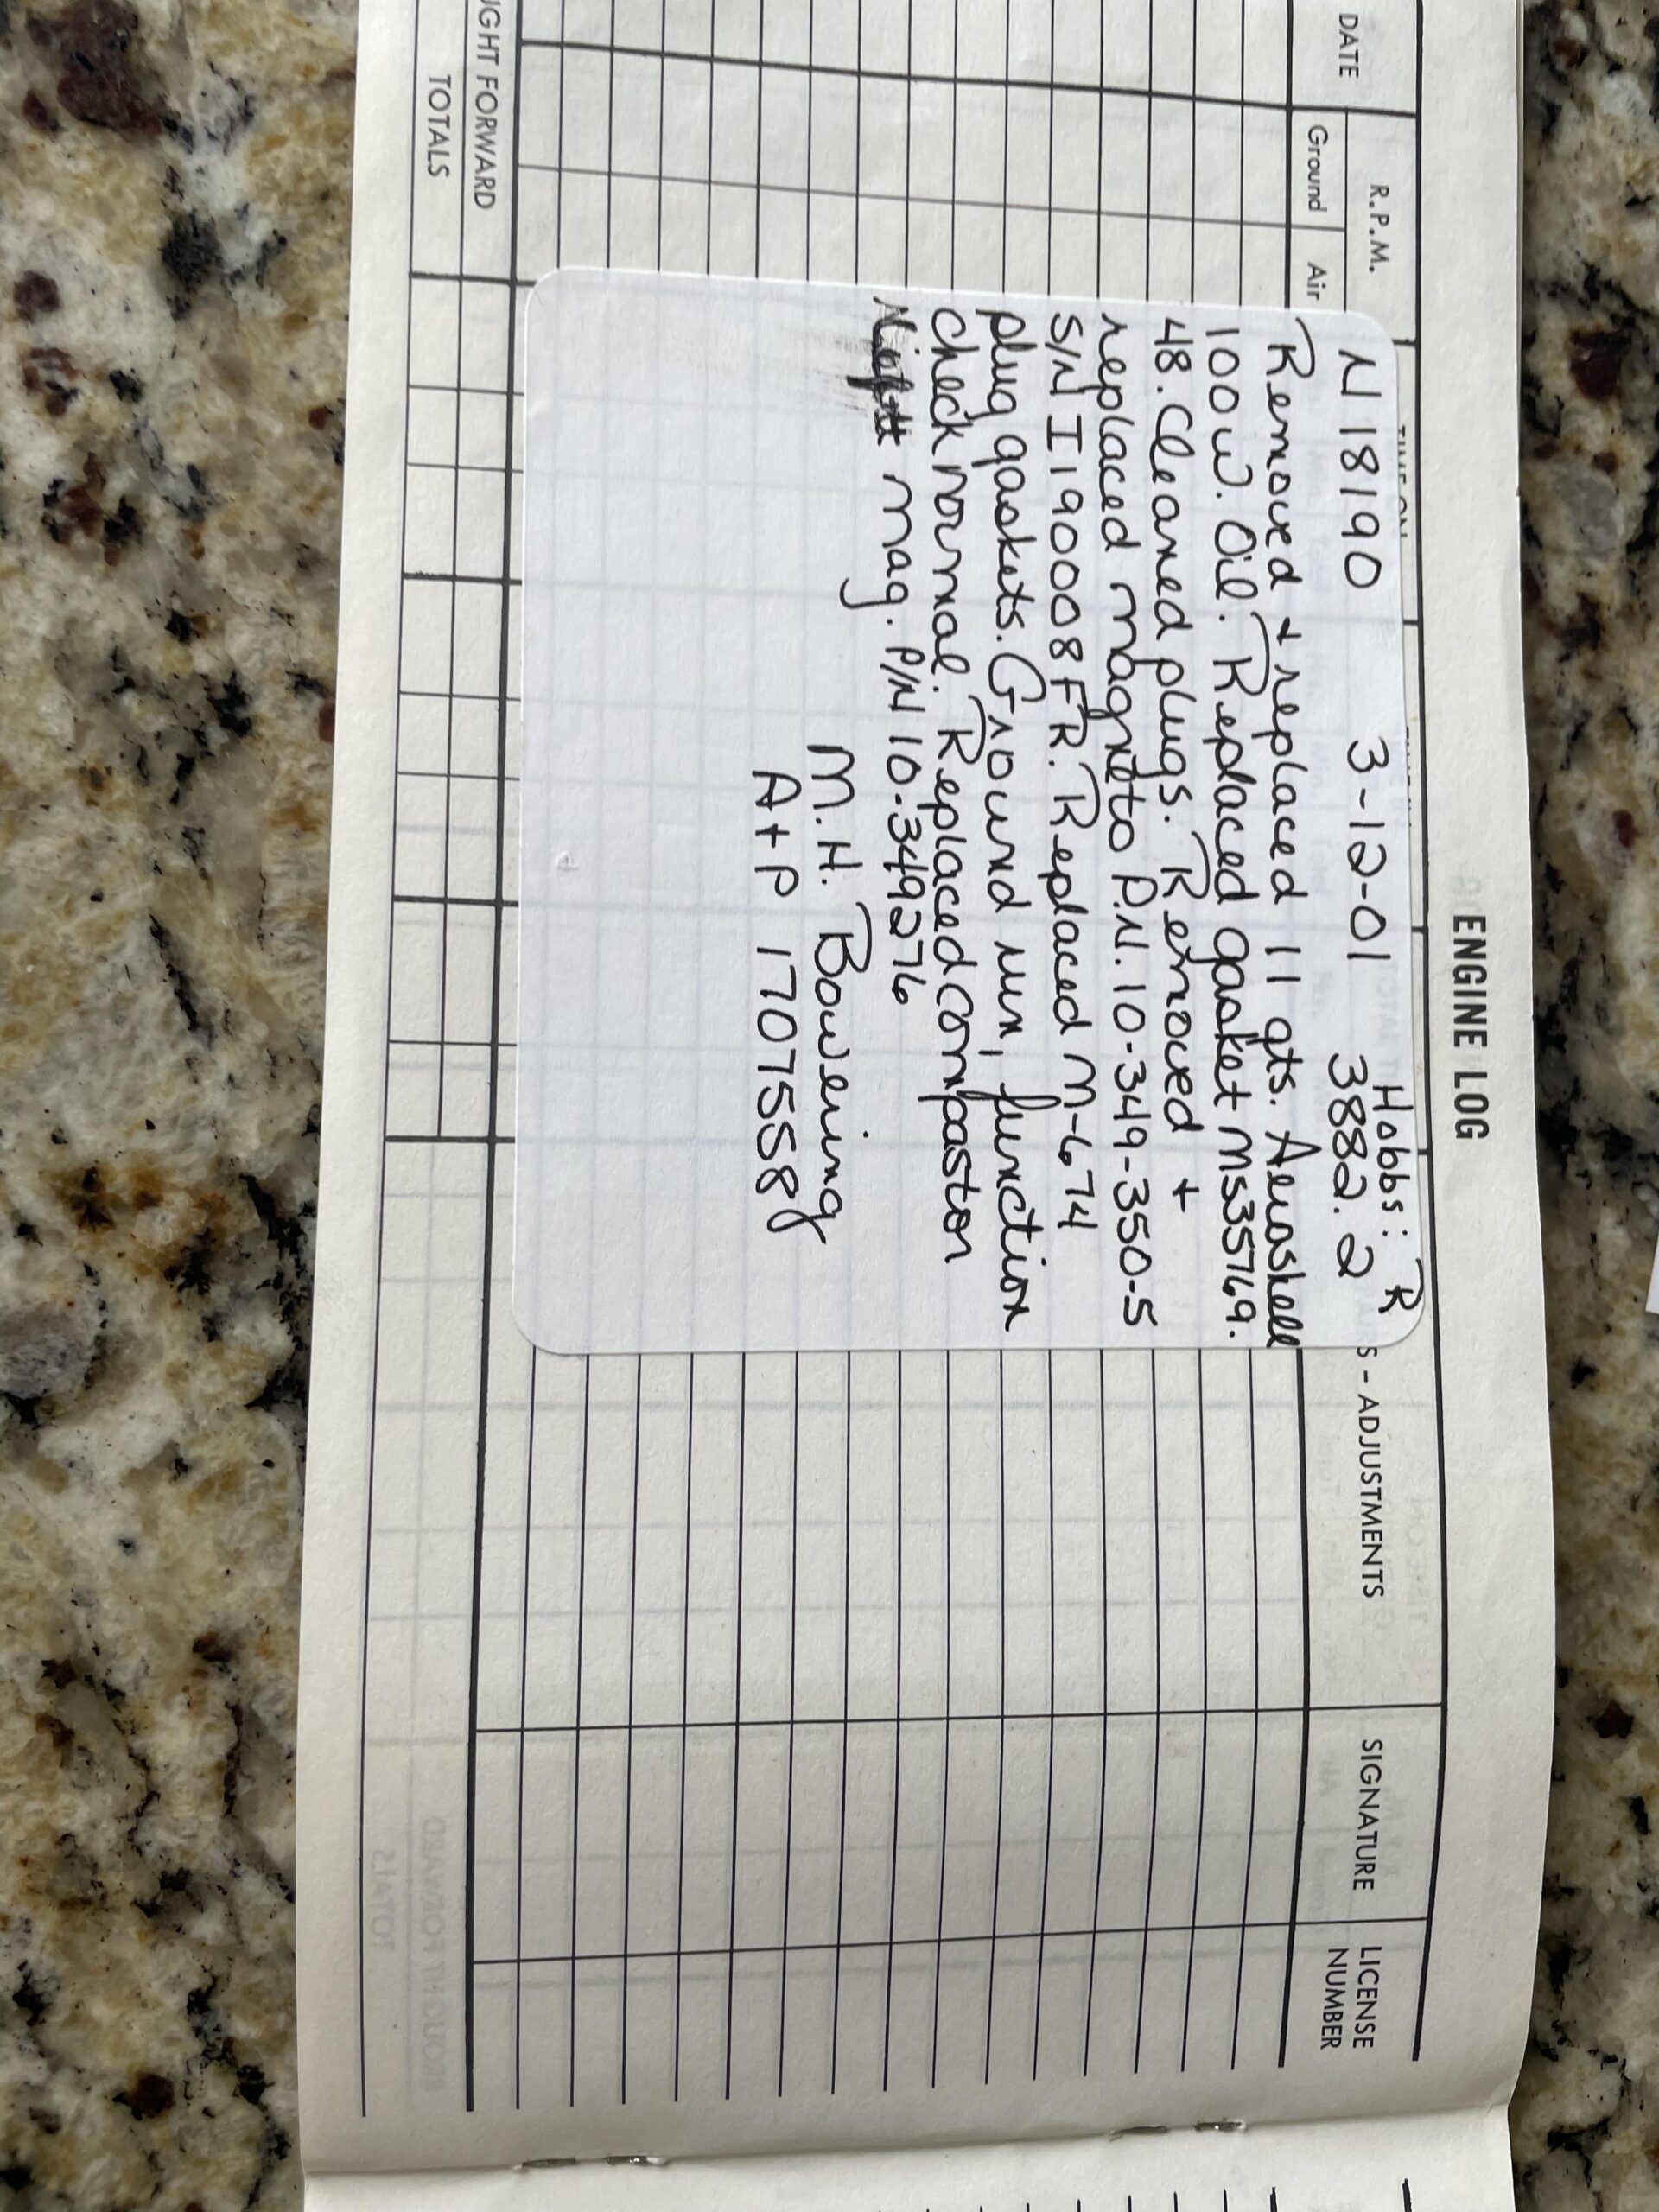 ENGINE LOG
DATE
R.P.M.
Ground
Air
S - ADJUSTMENTS
SIGNATURE
LICENSE
NUMBER
Hobbs: R
N18190 3-12-01 3882.2
Removed + replaced 11 qts. Aeroshell
100w. Oil. Replaced gasket MS35769.
48. Cleaned plugs. Removed +
replaced magneto P.N. 10-349-350-5
S/N I190008FR. Replaced M-674
plug gaskets. Ground run, function
check normal. Replaced compastor
mag. P/N 10-349276
M.H. Bowering
A+P 17075558
UGHT FORWARD
TOTALS